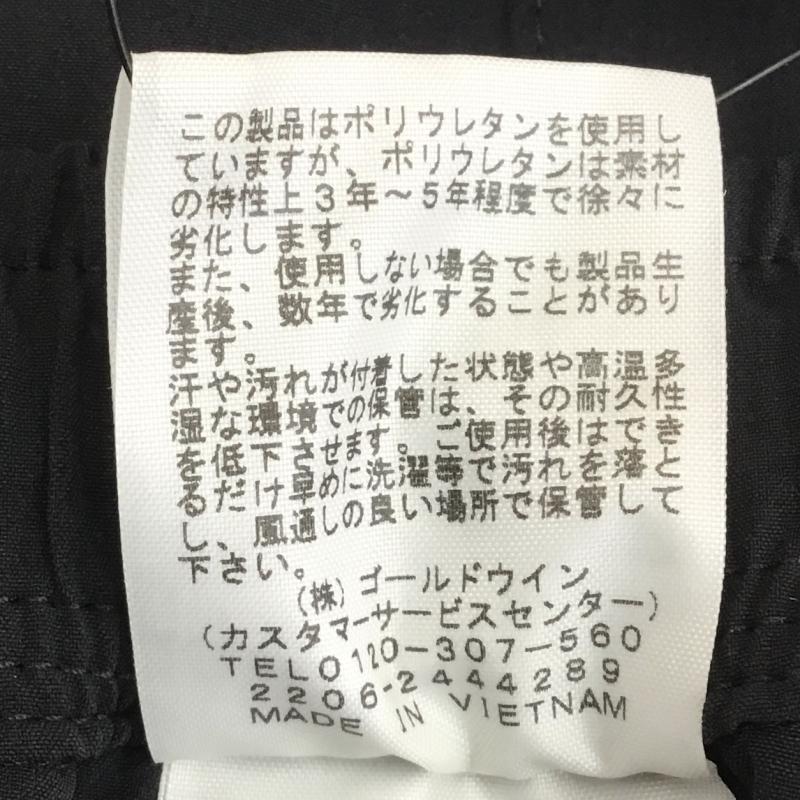 この製品はポリウレタンを使用し
ていますが、ポリウレタンは素材
の特性上3年～5年程度で徐々に
劣化します。
また、使用しない場合でも製品生
産後、数年で劣化することがあり
ます。
汗や汚れが付着した状態や高温多
湿な環境での保管は、その耐久性
を低下させます。ご使用後はできる
るだけ早めに洗濯等で汚れを落と
し、風通しの良い場所で保管して
下さい。
(株)ゴールドウイン
(カスタマーサービスセンター)
TEL0120-307-560
2206-2444289
MADE IN VIETNAM